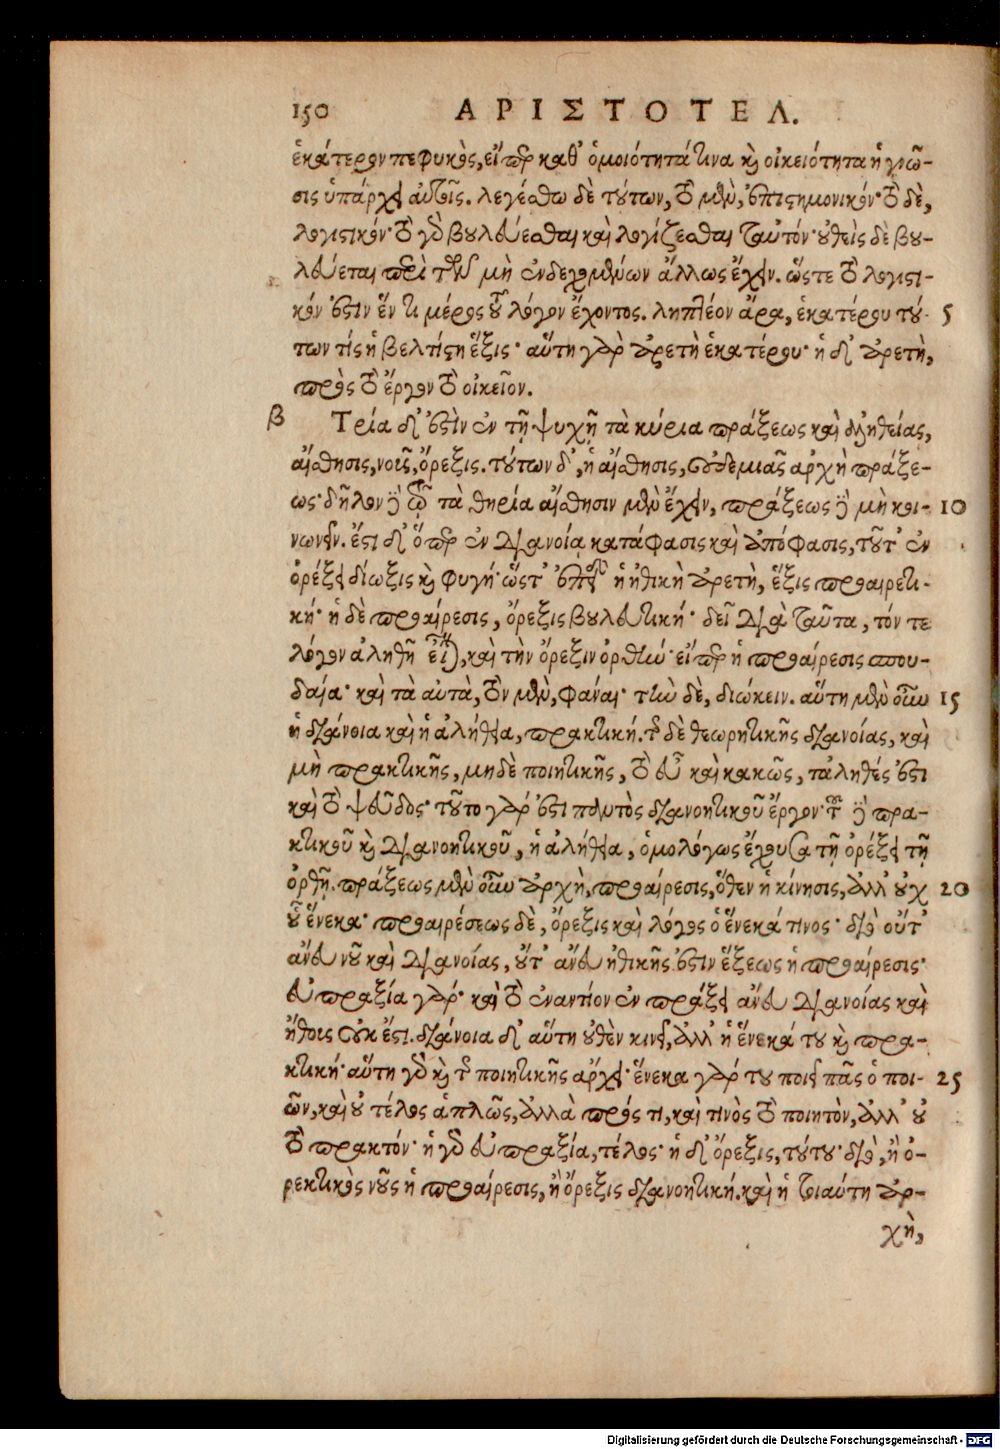 150 ΑΡΙΣΤΟΤΕΛ.
ἑκάτερον πεφυκὸς, εἴπερ καθ' ὁμοιότητά τινα καὶ οἰκειότητα ἡ γνῶ-
σις ὑπάρχει αὐτοῖς. λεγέσθω δὲ τούτων, τὸ μὲν, ἐπιστημονικόν· τὸ δὲ,
λογιστικόν· τὸ γὰρ βουλεύεσθαι καὶ λογίζεσθαι ταὐτόν· οὐθεὶς δὲ βου-
λεύεται περὶ τῶν μὴ ἐνδεχομένων ἄλλως ἔχειν. ὥστε τὸ λογιστι-
κόν ἐστιν ἕν τι μέρος τοῦ λόγον ἔχοντος. ληπτέον ἄρα, ἑκατέρου τού- 5
των τίς ἡ βελτίστη ἕξις· αὕτη γὰρ ἀρετὴ ἑκατέρου· ἡ δ' ἀρετὴ,
πρὸς τὸ ἔργον τὸ οἰκεῖον.
β Τρία δ' ἐστὶν ἐν τῇ ψυχῇ τὰ κύρια πράξεως καὶ ἀληθείας,
αἴσθησις, νοῦς, ὄρεξις. τούτων δ', ἡ αἴσθησις, οὐδεμιᾶς ἀρχὴ πράξε-
ως· δῆλον δὲ τῷ τὰ θηρία αἴσθησιν μὲν ἔχειν, πράξεως δὲ μὴ κοι- 10
νωνεῖν. ἔστι δ' ὅπερ ἐν διανοίᾳ κατάφασις καὶ ἀπόφασις, τοῦτ' ἐν
ὀρέξει δίωξις καὶ φυγή· ὥστ' ἐπειδὴ ἡ ἠθικὴ ἀρετὴ, ἕξις προαιρετι-
κή· ἡ δὲ προαίρεσις, ὄρεξις βουλευτική· δεῖ διὰ ταῦτα, τόν τε
λόγον ἀληθῆ εἶναι, καὶ τὴν ὄρεξιν ὀρθὴν· εἴπερ ἡ προαίρεσις σπου-
δαία· καὶ τὰ αὐτὰ, τὸν μὲν, φάναι· τὴν δὲ, διώκειν. αὕτη μὲν οὖν 15
ἡ διάνοια καὶ ἡ ἀλήθεια, πρακτική. τῆς δὲ θεωρητικῆς διανοίας, καὶ
μὴ πρακτικῆς, μηδὲ ποιητικῆς, τὸ εὖ καὶ κακῶς, τἀληθές ἐστι
καὶ τὸ ψεῦδος· τοῦτο γάρ ἐστι παντὸς διανοητικοῦ ἔργον· τοῦ δὲ πρα-
κτικοῦ καὶ διανοητικοῦ, ἡ ἀλήθεια, ὁμολόγως ἔχουσα τῇ ὀρέξει τῇ
ὀρθῇ. πράξεως μὲν οὖν ἀρχὴ, προαίρεσις, ὅθεν ἡ κίνησις, ἀλλ' οὐχ 20
οὗ ἕνεκα· προαιρέσεως δὲ, ὄρεξις καὶ λόγος ὁ ἕνεκά τινος· διὸ οὔτ'
ἄνευ νοῦ καὶ διανοίας, οὔτ' ἄνευ ἠθικῆς ἐστιν ἕξεως ἡ προαίρεσις·
εὐπραξία γάρ· καὶ τὸ ἐναντίον ἐν πράξει ἄνευ διανοίας καὶ
ἤθους οὐκ ἔστι. διάνοια δ' αὕτη οὐθὲν κινεῖ, ἀλλ' ἡ ἕνεκά του καὶ πρα-
κτική· αὕτη γὰρ καὶ τῆς ποιητικῆς ἄρχει· ἕνεκα γάρ του ποιεῖ πᾶς ὁ ποι- 25
ῶν, καὶ οὐ τέλος ἁπλῶς, ἀλλὰ πρός τι, καὶ τινὸς τὸ ποιητὸν, ἀλλ' οὐ
τὸ πρακτόν· ἡ γὰρ εὐπραξία, τέλος· ἡ δ' ὄρεξις, τούτου· διὸ, ἢ ὀ-
ρεκτικὸς νοῦς ἡ προαίρεσις, ἢ ὄρεξις διανοητική. καὶ ἡ τοιαύτη ἀρ-
χὴ,
Digitalisierung gefördert durch die Deutsche Forschungsgemeinschaft - DFG